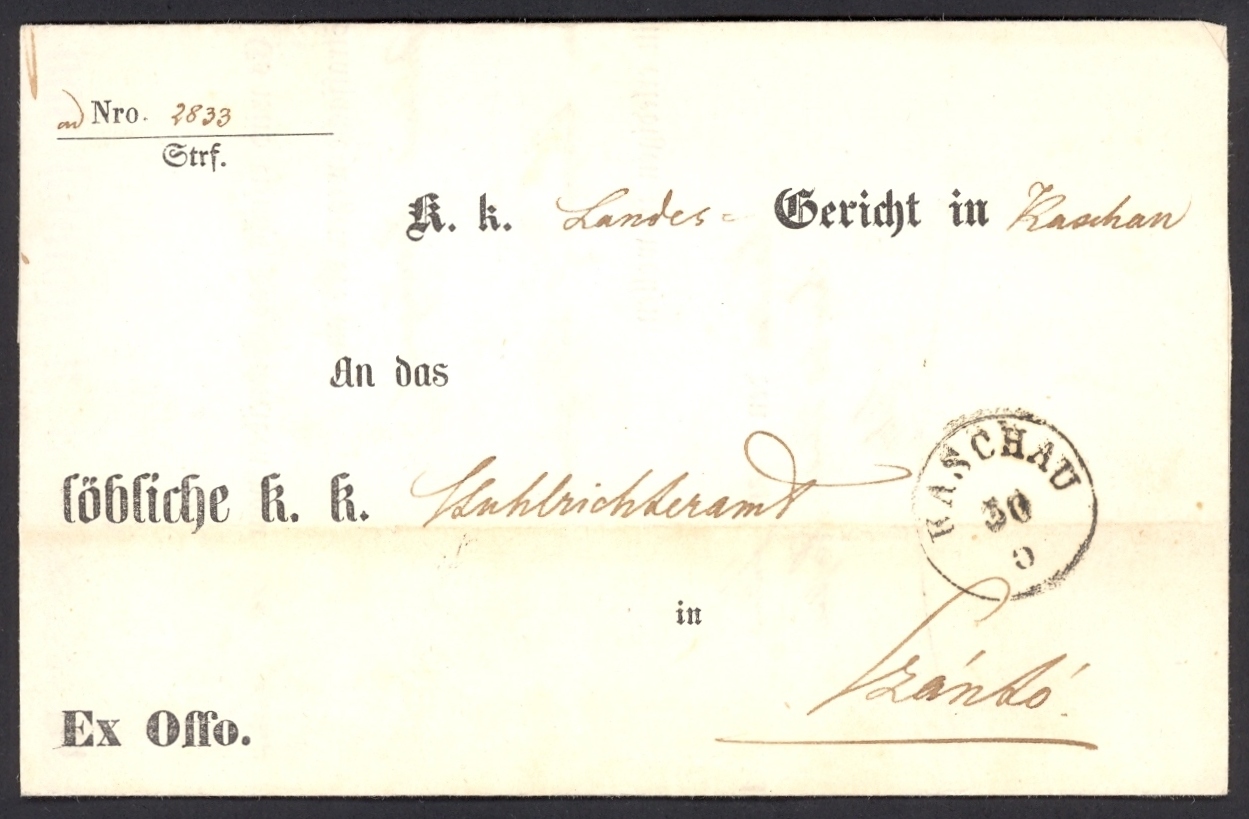 ad Nro. 2833
Strf.
K. k. Landes= Gericht in Kaschau
An das
löbliche k. k. Stuhlrichteramt
KASCHAU
30
in
Szántó.
Ex Offo.